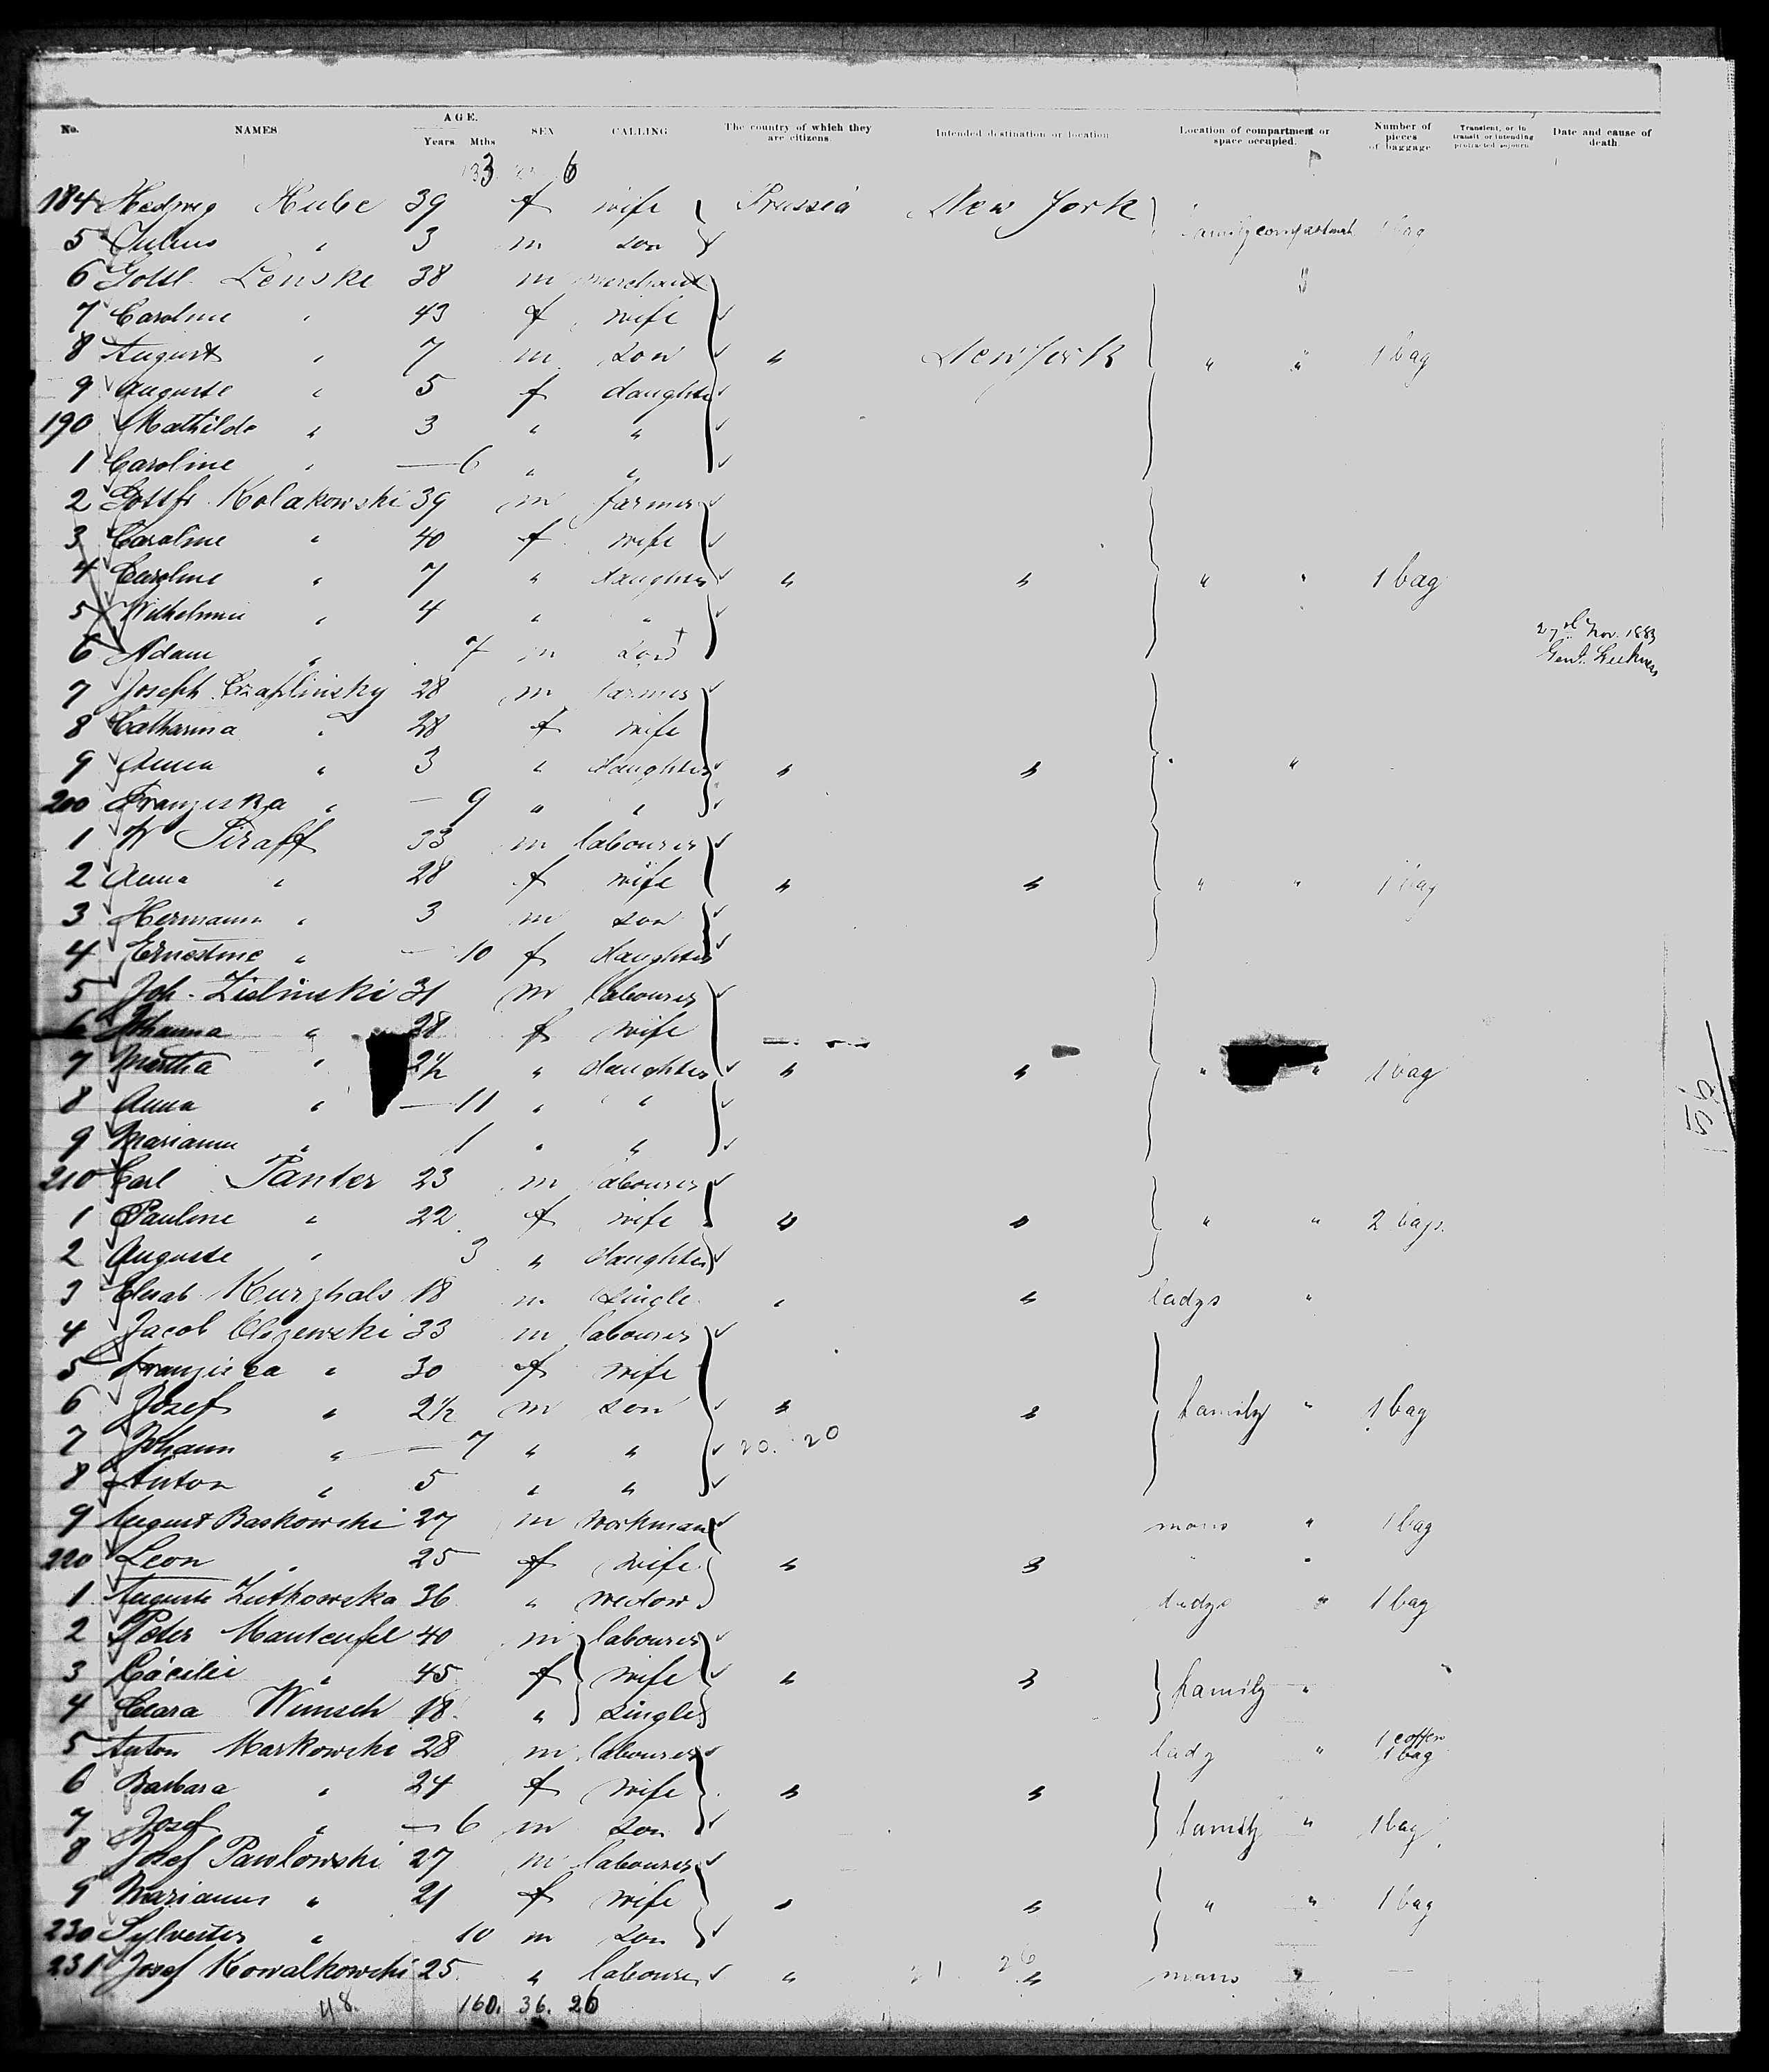 No. NAMES AGE. Years Mths SEX CALLING The country of which they are citizens. Intended destination or location Location of compartment or space occupied. Number of pieces of baggage Transient, or in transit or intending protracted sojourn Date and cause of death.
33 6
184 Hedwig Hube 39 f wife Prussia New York family compartment 1 bag
5 Julius " 3 m son
6 Gottl. Lenski 38 m merchant "
7 Caroline " 43 f wife
8 August " 7 m son " New York " " 1 bag
9 Auguste " 5 f daughter
190 Mathilde " 3 " "
1 Caroline " — 6 " "
2 Gottfr. Kolakowski 39 m farmer
3 Caroline " 40 f wife
4 Caroline " 7 " daughter " " " " 1 bag
5 Wilhelmine " 4 " "
6 Adam " 7 m son † 27 Nov. 1883
7 Joseph Czaplinsky 28 m farmer
8 Catharina " 28 f wife
9 Anna " 3 " daughter " " " "
200 Franziska " — 9 " "
1 W Siraff 33 m labourer
2 Anna " 28 f wife " " " " 1 bag
3 Hermann " 3 m son
4 Ernestine " — 10 f daughter
5 Joh. Zielinski 31 m labourer
6 Johanna " 28 f wife
7 Martha " 2½ " daughter " " " " 1 bag
8 Anna " — 11 " "
9 Marianne " 1 " "
210 Carl Panter 23 m labourer
1 Pauline " 22 f wife " " " " 2 bags.
2 Auguste " 3 " daughter
3 Elisab. Kurzhals 18 m single " " ladys "
4 Jacob Olszewski 33 m labourer
5 Franzisca " 30 f wife
6 Josef " 2½ m son " " family " 1 bag
7 Johann " — 7 " " 20. 20
8 Anton " 5 " "
9 August Baskowski 27 m workman mans " 1 bag
220 Leon " 25 f wife " " " "
1 Auguste Zutkowska 36 " widow ladys " 1 bag
2 Peter Manteufel 40 m labourer
3 Cäcilie " 45 f wife " " family "
4 Clara Wunsch 18 " single
5 Anton Markowski 28 m labourer lady " 1 coffer 1 bag
6 Barbara " 24 f wife " "
7 Josef " — 6 m son family " 1 bag
8 Josef Pawlowski 27 m labourer
9 Marianne " 21 f wife " " " " 1 bag
230 Sylvester " 10 m son
231 Josef Kowalkowski 25 " labourer " " mans "
48. 160. 36. 26